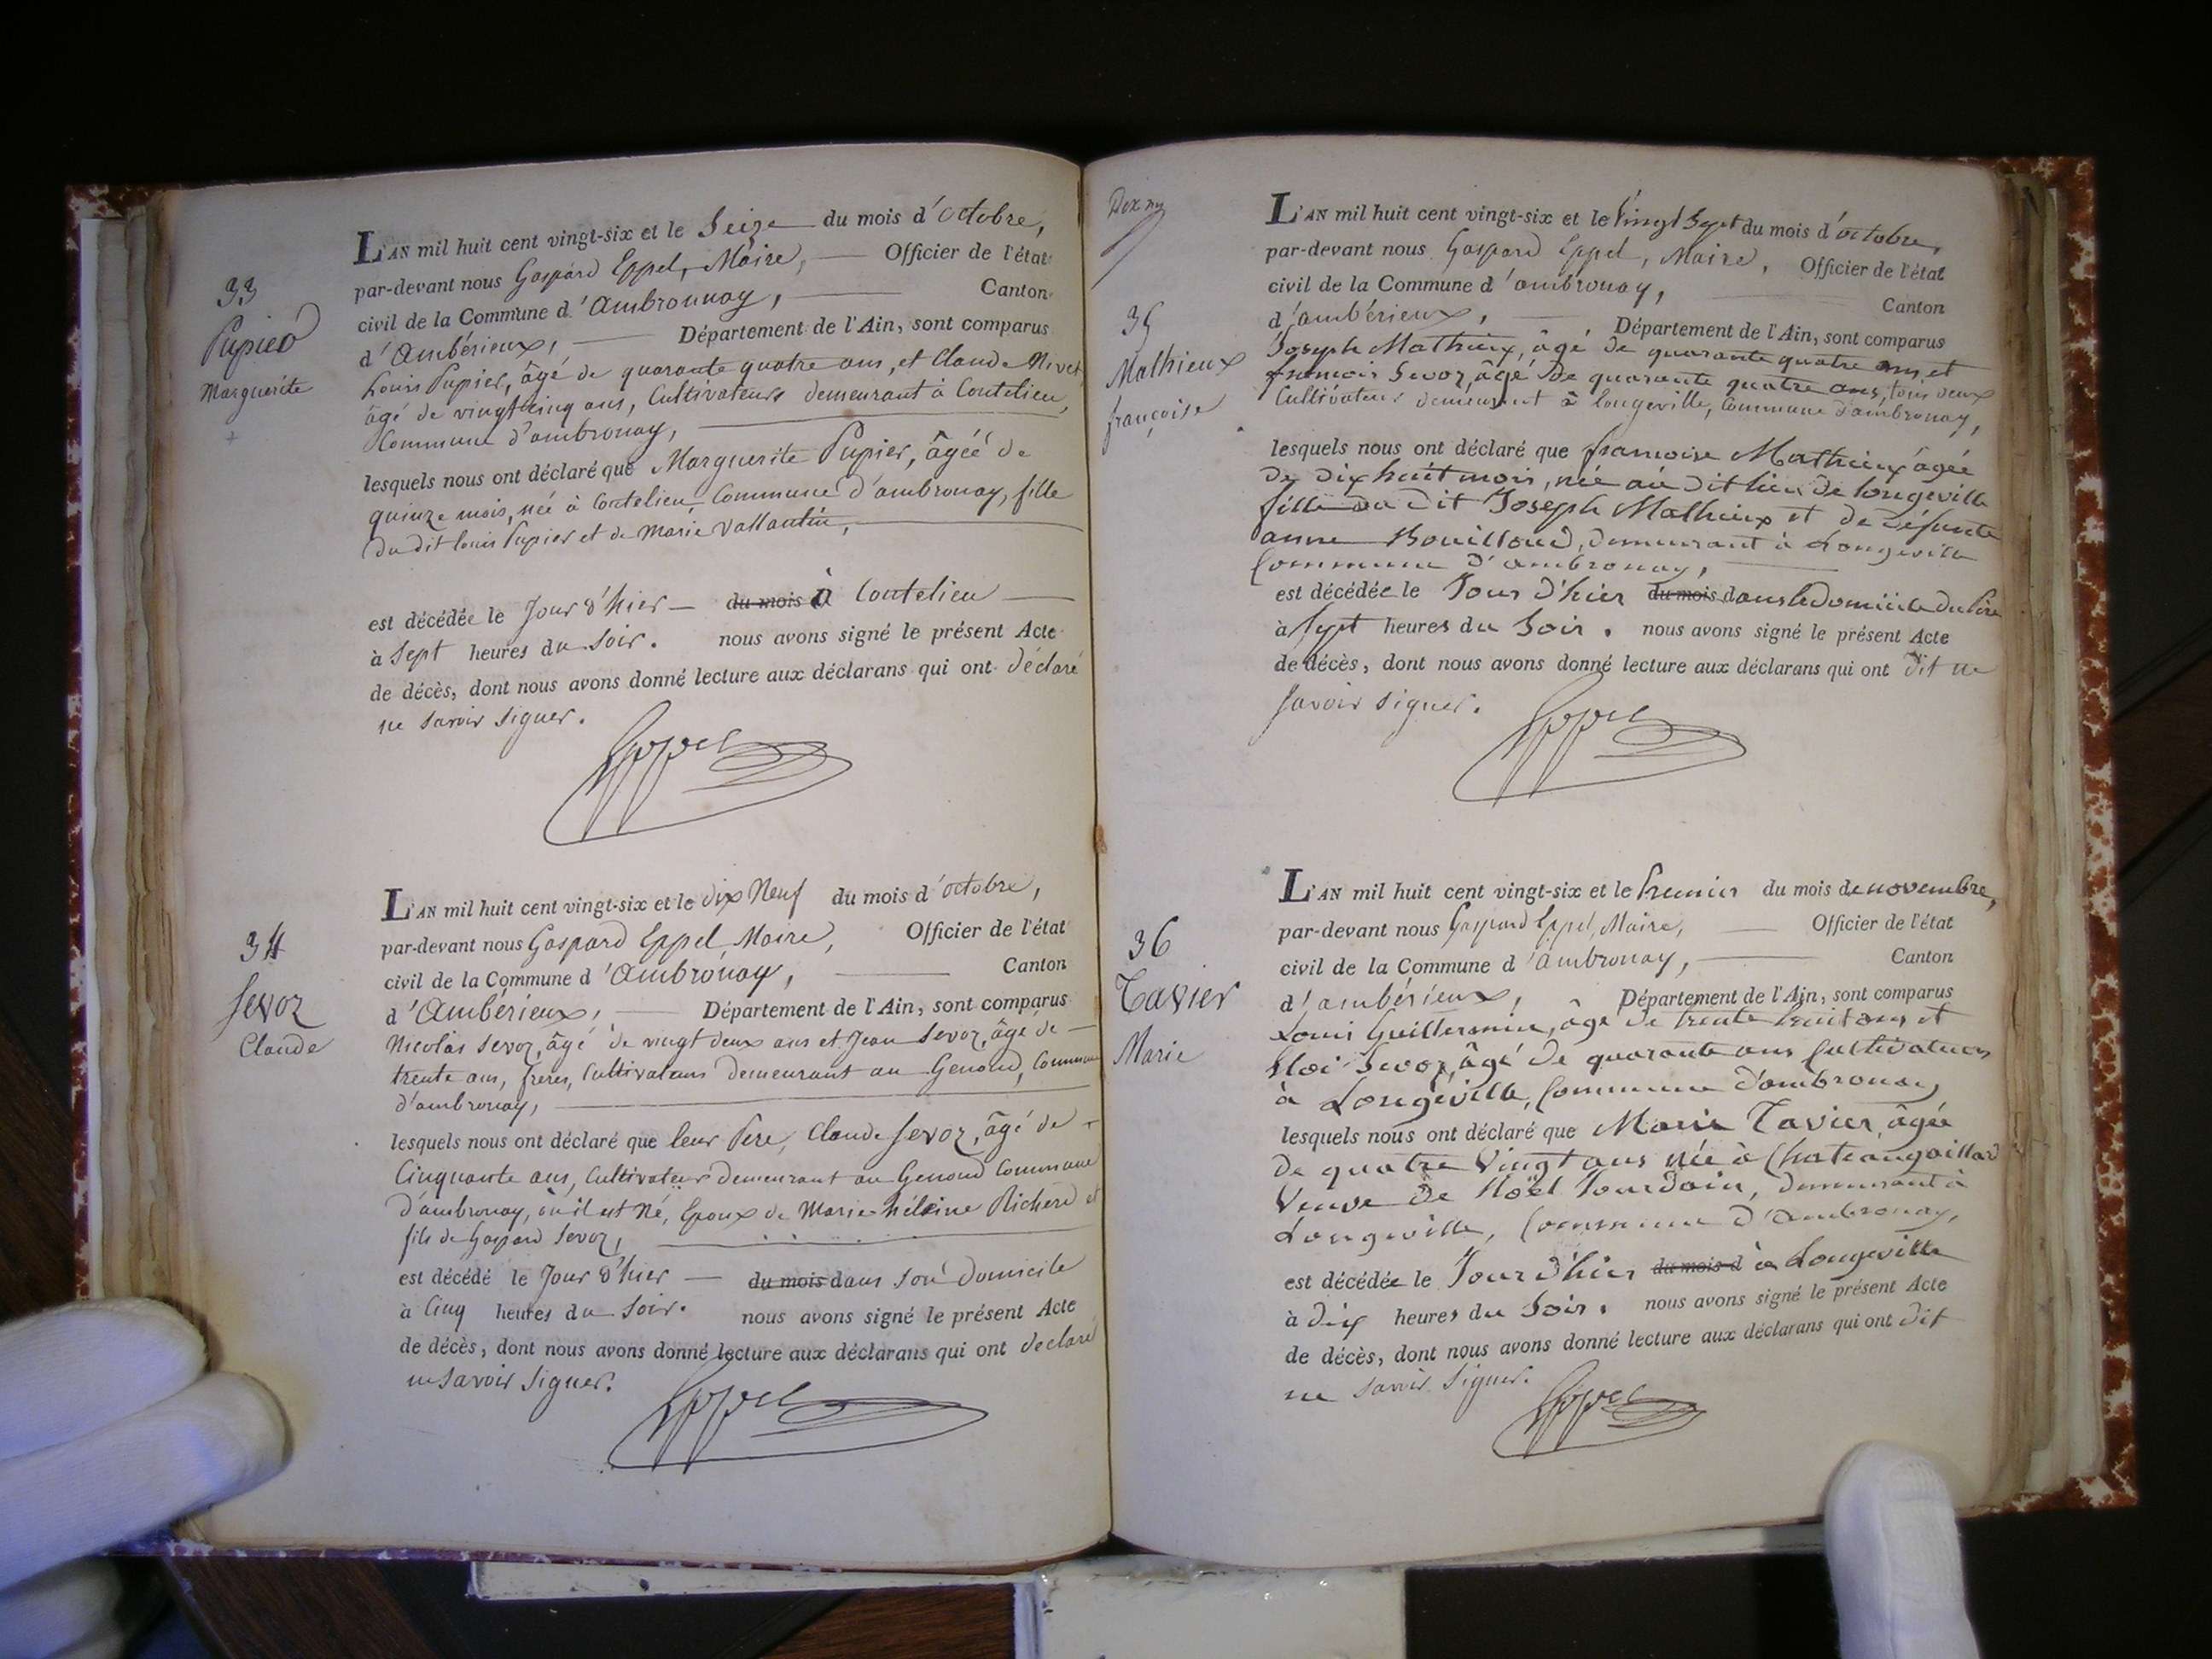 33
Pupier
Marguerite
L'AN mil huit cent vingt-six et le Seize du mois d'octobre,
par-devant nous Gaspard Eppel, Maire, Officier de l'état
civil de la Commune d'Ambronnay, Canton
d'Ambérieux, Département de l'Ain, sont comparus
Louis Pupier, âgé de quarante quatre ans, et Claude Nivet,
âgé de vingt cinq ans, Cultivateurs demeurant à Coutelieu,
Commune d'ambronay,
lesquels nous ont déclaré que Marguerite Pupier, âgéé de
quinze mois, née à Coutelieu, Commune d'ambronay, fille
du dit louis Pupier et de Marie Vallantin,
est décédée le Jour d'hier du mois à Coutelieu
à Sept heures du Soir. nous avons signé le présent Acte
de décès, dont nous avons donné lecture aux déclarans qui ont déclaré
ne savoir signer.
Eppel
34
Sevoz
Claude
L'AN mil huit cent vingt-six et le dix Neuf du mois d'octobre,
par-devant nous Gaspard Eppel Maire, Officier de l'état
civil de la Commune d'Ambronay, Canton
d'Ambérieux, Département de l'Ain, sont comparus
Nicolas Sevoz, âgé de vingt deux ans et Jean Sevoz, âgé de
trente ans, freres, Cultivateurs demeurant au Genoud, Commune
d'ambronay,
lesquels nous ont déclaré que leur Pere, Claude Sevoz, âgé de
Cinquante ans, Cultivateur demeurant au Genoud Commune
d'ambronay, où il est Né, Epoux de Marie héleine Richerd et
fils de Gaspard Sevoz,
est décédé le Jour d'hier du mois dans son domicile
à Cinq heures du Soir. nous avons signé le présent Acte
de décès, dont nous avons donné lecture aux déclarans qui ont declaré
ne savoir signer.
Eppel
35
Mathieux
françoise
L'AN mil huit cent vingt-six et le Vingt Sept du mois d'octobre,
par-devant nous Gaspard Eppel, Maire, Officier de l'état
civil de la Commune d'ambronay, Canton
d'ambérieux, Département de l'Ain, sont comparus
Joseph Mathieux, âgé de quarante quatre ans et
francois Sevoz, âgé de quarante quatre ans, tous deux
Cultivateurs demeurant à longeville, Commune d'ambronay,
lesquels nous ont déclaré que francoise Mathieux âgée
de dix huit mois, née au dit lieu de longeville
fille du dit Joseph Mathieux et de défunte
anne Bouilloud, demeurant à Longeville
Commune d'ambronay,
est décédée le Jour d'hier du mois dans le domicile du Pere
à Sept heures du Soir. nous avons signé le présent Acte
de décès, dont nous avons donné lecture aux déclarans qui ont dit ne
savoir signer.
Eppel
36
Tavier
Marie
L'AN mil huit cent vingt-six et le Premier du mois de novembre,
par-devant nous Gaspard Eppel, Maire, Officier de l'état
civil de la Commune d'ambronay, Canton
d'ambérieux, Département de l'Ain, sont comparus
Louis Guillermin, âgé de trente huit ans et
Eloi Sevoz, âgé de quarante ans Cultivateurs
à Longeville, Commune d'ambronay
lesquels nous ont déclaré que Marie Tavier, âgée
de quatre Vingt ans née à Chateaugaillard
Veuve de Noël Jourdain, demeurant à
Longeville, Commune d'Ambronay,
est décédée le Jour d'hier du mois d à Longeville
à dix heures du Soir. nous avons signé le présent Acte
de décès, dont nous avons donné lecture aux déclarans qui ont dit
ne savoir signer.
Eppel